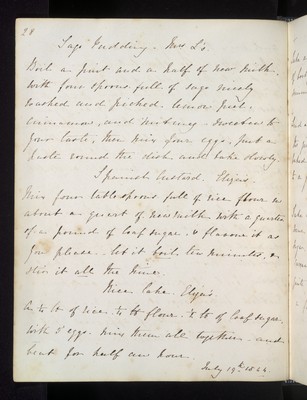 28
Sago Pudding - Mrs L's
Boil a pint and a half of new milk.
with four spoons full of sago nicely
washed and picked. lemon peel.
cinnamon. and nutmeg - sweeten to
your taste, then mix four eggs. put a
paste round the dish and bake slowly.
Spanish Custard. Eliza's
Mix four tablespoons full of rice flour in
about a quart of new milk with a quarter
of a pound of loaf sugar. & flavour it as
you please. let it boil ten minutes, &
stir it all the time.
Rice Cake. Eliza's
lb of rice. lb flour. lb of loaf sugar.
with 8 eggs. mix them all together. and
beat for half an hour.
July 19th